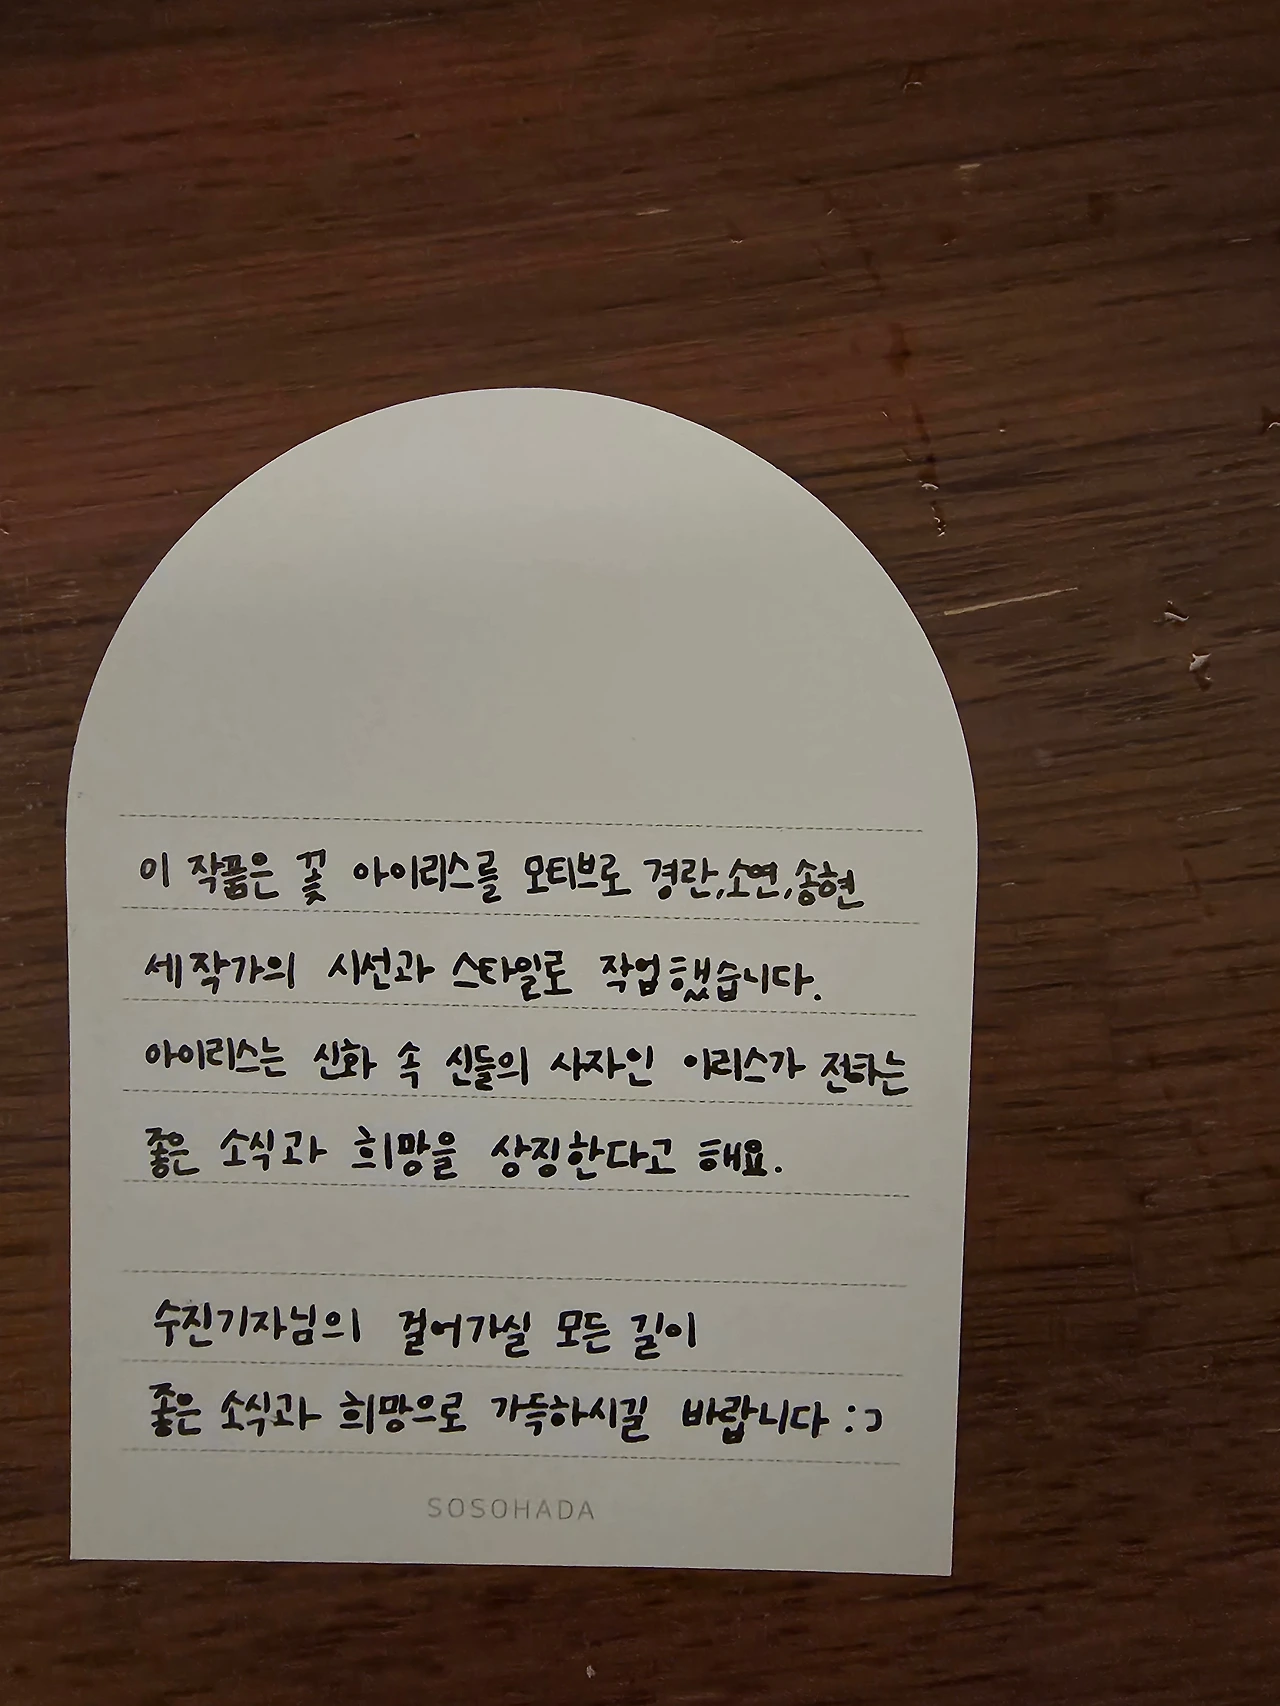 이 작품은 꽃 아이리스를 모티브로 경란,소연,송현
세 작가의 시선과 스타일로 작업했습니다.
아이리스는 신화 속 신들의 사자인 이리스가 전하는
좋은 소식과 희망을 상징한다고 해요.
수진기자님의 걸어가실 모든 길이
좋은 소식과 희망으로 가득하시길 바랍니다 :)
SOSOHADA